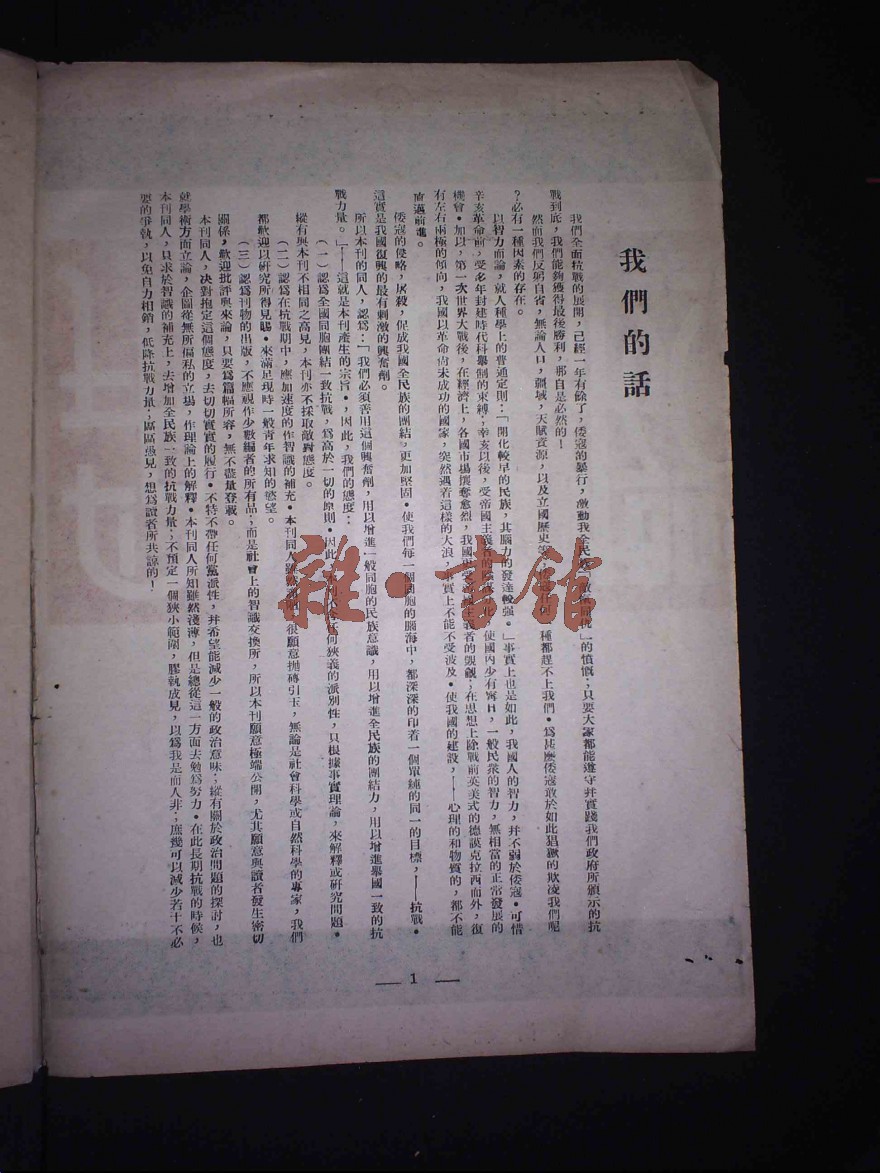 我們的話
我們全面抗戰的展開，已經一年有餘了，倭寇的暴行，激動我全民族「敵愾同仇」的憤慨；只要大家都能遵守幷實踐我們政府所頒示的抗
戰到底，我們能夠獲得最後勝利，那自是必然的！
然而我們反躬自省，無論人口，疆域，天賦資源，以及立國歷史等種都趕不上我們。爲甚麽倭寇敢於如此猖獗的欺凌我們呢
？必有一種因素的存在。
以智力而論，就人種學上的普通定則：「開化較早的民族，其腦力的發達較强。」事實上也是如此，我國人的智力，幷不弱於倭寇。可惜
辛亥革命前，受多年封建時代科舉制的束縛；辛亥以後，受帝國主義者的使國內少有寗日，一般民衆的智力，無相當的正常發展的
機會。加以，第一次世界大戰後，在經濟上，各國市場攫奪愈烈，我國更受帝國主義者的覬覦；在思想上除戰前英美式的德謨克拉西而外，復
有左右兩極的傾向，我國以革命尚未成功的國家，突然遇着這樣的大浪，事實上不能不受波及。使我國的建設，——心理的和物質的，都不能
直邁前進。
倭寇的侵略，屠殺，促成我國全民族的團結。更加堅固。使我們每一個同胞的腦海中，都深深的印着一個單純的同一的目標，——抗戰。
這實是我國復興的最有刺激的興奮劑。
所以本刊的同人，認爲：「我們必須善用這個興奮劑，用以增進一般同胞的民族意識，用以增進全民族的團結力，用以增進舉國一致的抗
戰力量。」——這就是本刊產生的宗旨。，因此，我們的態度：
（一）認爲全國同胞團結一致抗戰，爲高於一切的原則。因此，本刊不含任何狹義的派別性，只根據事實理論，來解釋或研究問題。
縱有與本刊不相同之高見，本刊亦不採取敵對態度。
（二）認爲在抗戰期中，應加速度的作智識的補充。本刊同人雖很願意拋磚引玉，無論是社會科學或自然科學的專家，我們
都歡迎以研究所得見賜。來滿足現時一般靑年求知的慾望。
（三）認爲刊物的出版，不應視作少數編者的所有品；而是社會上的智識交換所，所以本刊願意極端公開，尤其願意與讀者發生密切
關係，歡迎批評與來論，只要爲篇幅所容，無不盡量登載。
本刊同人，決對抱定這個態度，去切切實實的履行。不特不帶任何黨派性，幷希望能減少一般的政治意味；縱有關於政治問題的探討，也
就學術方面立論，企圖從無所偏私的立場，作理論上的解釋。本刊同人所知雖然淺薄，但是總從這一方面去勉爲努力。在此長期抗戰的時候，
本刊同人，只求於智識的補充上，去增加全民族一致的抗戰力量；不預定一個狹小範圍，膠執成見，以爲我是而人非；庶幾可以減少若干不必
要的爭執，以免自力相銷，低降抗戰力量；區區愚見，想爲讀者所共諒的！
— 1 —
雜·書館